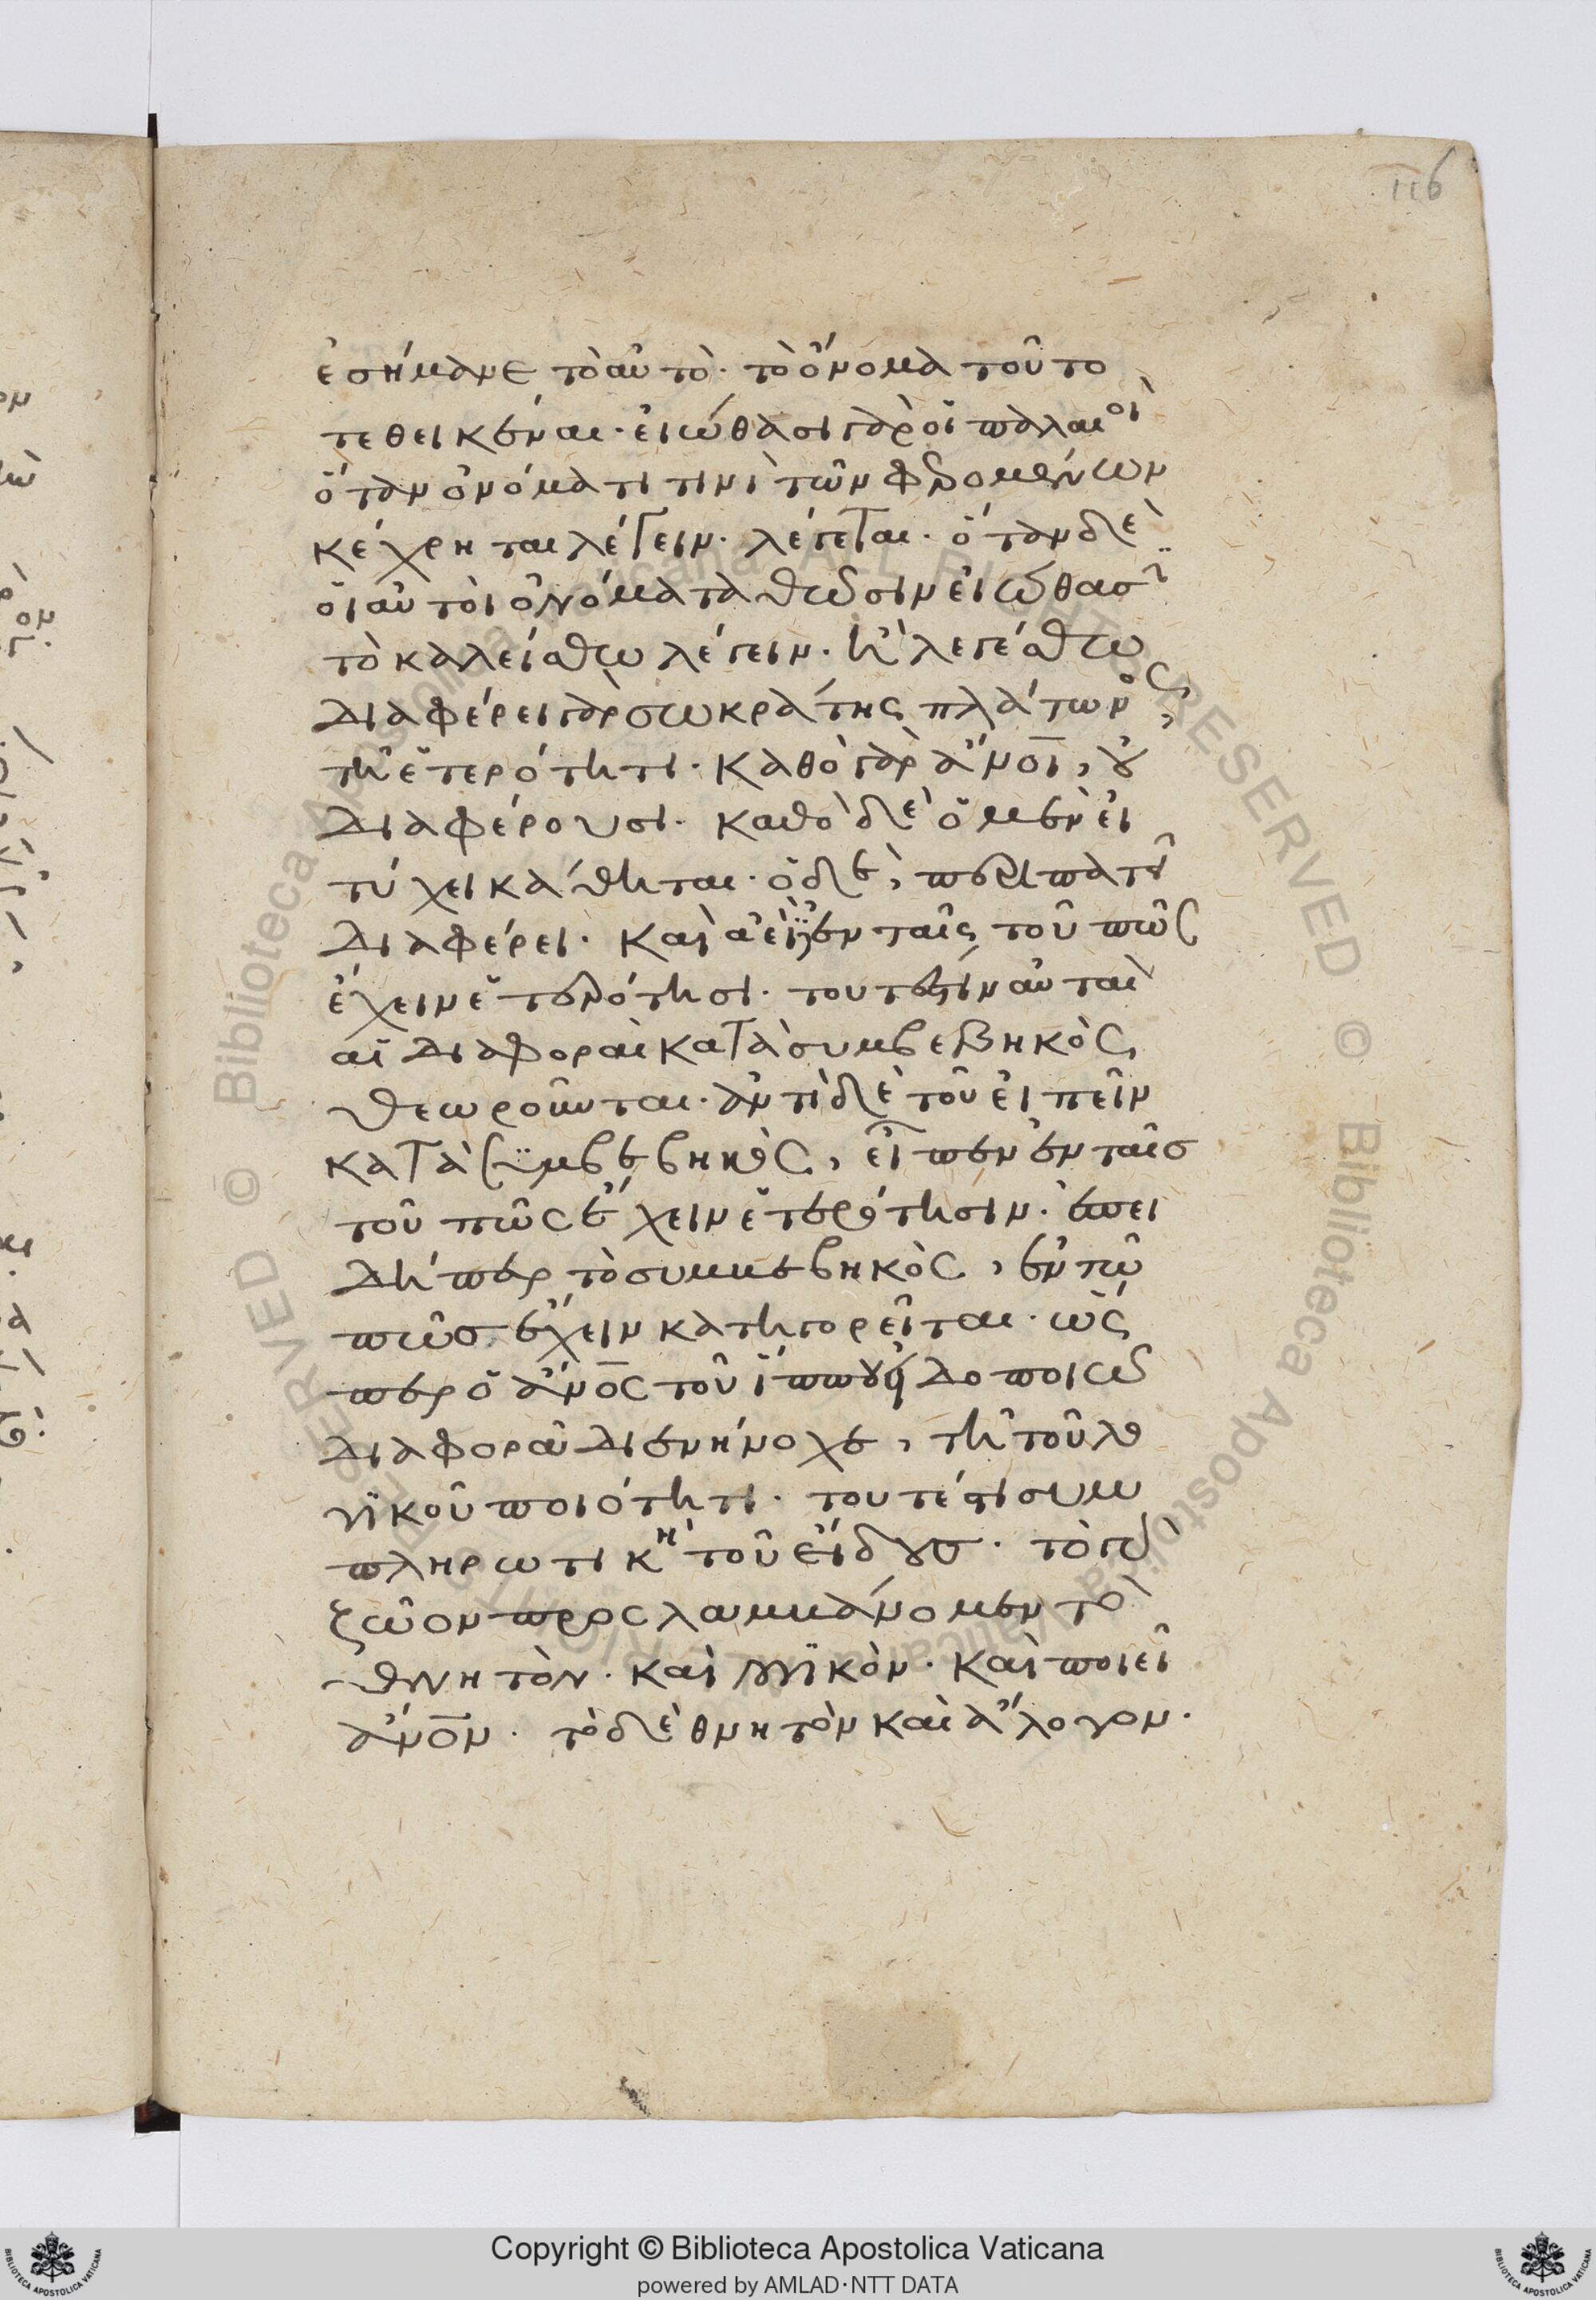 116
ἐσήμανε τὸ αὐτὸ· τὸ ὄνομα τοῦτο
τεθεικέναι· εἰώθασι γὰρ οἱ παλαιοὶ
ὅταν ὀνόματι τινὶ τῶν φερομένων
κέχρηται λέγειν· λέγεται· ὅταν δὲ
οἱ αὐτοὶ ὀνόματα θῶσιν εἰώθασϊ
τὸ καλείσθω λέγειν· ἢ λεγέσθω
Διαφέρει γὰρ σωκράτης πλάτωνος,
τῇ ἑτερότητι· καθὸ γὰρ ἄνοι, οὐ
Διαφέρουσι· καθὸ δὲ ὁ μὲν εἰ
τύχει κάθηται· ὁ δὲ, περιπατεῖ
Διαφέρει· καὶ ἀεὶ ἐν ταῖς τοῦ πῶς
ἔχειν ἑτερότησι· τουτέστιν αὗται
αἱ Διαφοραὶ κατὰ συμβεβηκὸς
θεωροῦνται· ἀντὶ δὲ τοῦ εἰπεῖν
κατὰ συμβεβηκὸς, εἶπεν ἐν ταῖς
τοῦ πῶς ἔχειν ἑτερότησιν· ἐπει
Δήπερ τὸ συμβεβηκὸς, ἐν τῶ
πῶς ἔχειν κατηγορεῖται· ὥς
περ ὁ ἄνος τοῦ ἵππου εἰδοποιῶ
Διαφορᾶ Διενήνοχε, τῇ τοῦ λο
γϊκοῦ ποιότητι· τουτέστι συμ
πληρωτικὴ τοῦ εἴδους· τὸ γὰρ
ζῶον προσλαμβάνομεν τὸ
θνητὸν· καὶ λογϊκὸν· καὶ ποιεῖ
ἄνον· τὸ δὲ θνητὸν καὶ ἄλογον·
Copyright © Biblioteca Apostolica Vaticana
powered by AMLAD·NTT DATA